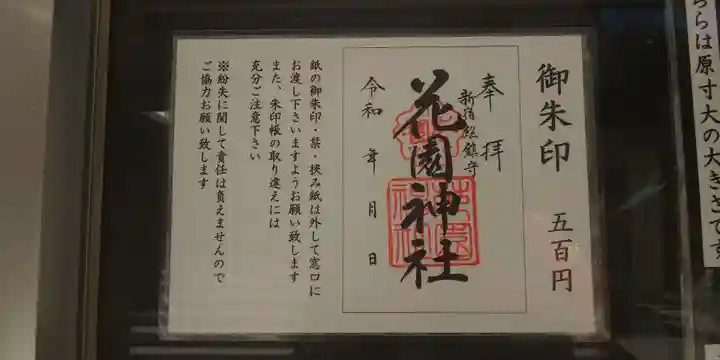 ちらは原寸大の大きさです
御朱印 五百円
奉拝
新宿総鎮守
花園神社
令和 年 月 日
紙の御朱印・栞・挟み紙は外して窓口に
お渡し下さいますようお願い致します
また、朱印帳の取り違えには
充分ご注意下さい
※紛失に関して責任は負えませんので
ご協力お願い致します